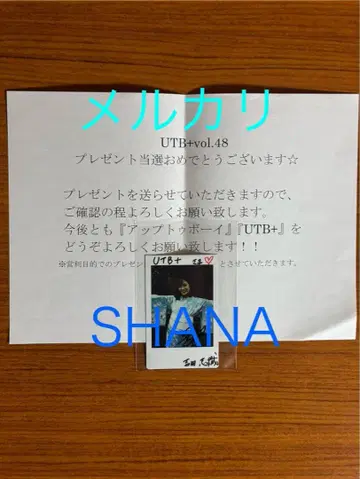 メルカリ
UTB+vol.48
プレゼント当選おめでとうございます☆
プレゼントを送らせていただきますので、
ご確認の程よろしくお願い致します。
今後とも『アップトゥボーイ』『UTB+』を
どうぞよろしくお願い致します！！
※営利目的でのプレゼン
とさせていただきます。
UTB+
SHANA